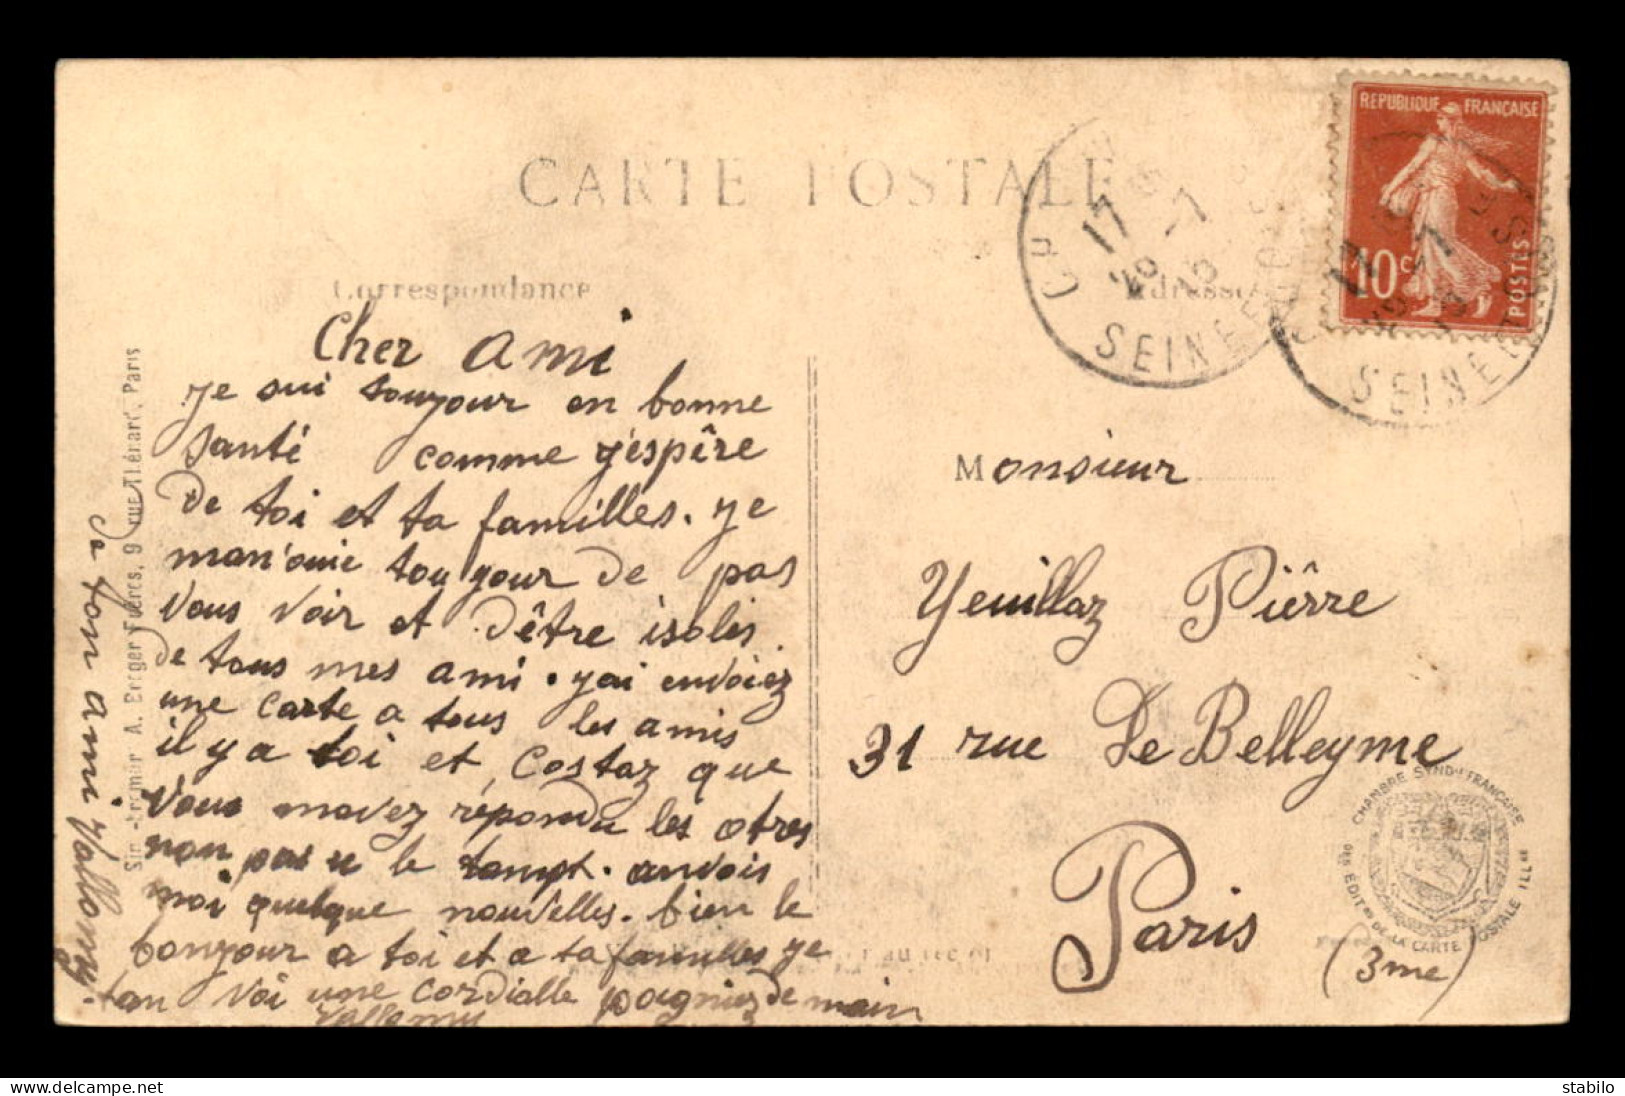 CARTE POSTALE
Correspondance
Adresse
REPUBLIQUE FRANÇAISE
10c
POSTES
17
29 -7
15
SEINE ET OISE
17
-7
SEINE ET OISE
Cher ami
je sui toujour en bonne
santé comme j'éspêre
de toi et ta familles. je
man'ouie toujour de pas
vous voir et d'être isolés
de tous mes ami. j'ai envoiez
une carte a tous les amis
il y a toi et Costaz que
vous mavez répondu les otres
non pas u le tampt. anvois
moi quelque nouvelles. bien le
bonjour a toi et a ta familles je
tan voi une cordialle poigniez de main
Vallomy
de ton ami Vallomy.
A. Breger Frères, 9 rue Thénard, Paris
Monsieur
Yeuillaz Piêrre
31 rue De Belleyme
Paris
(3me)
CHAMBRE SYND. FRANÇAISE
DES ÉDITRS DE LA CARTE POSTALE ILLÉE
stabilo